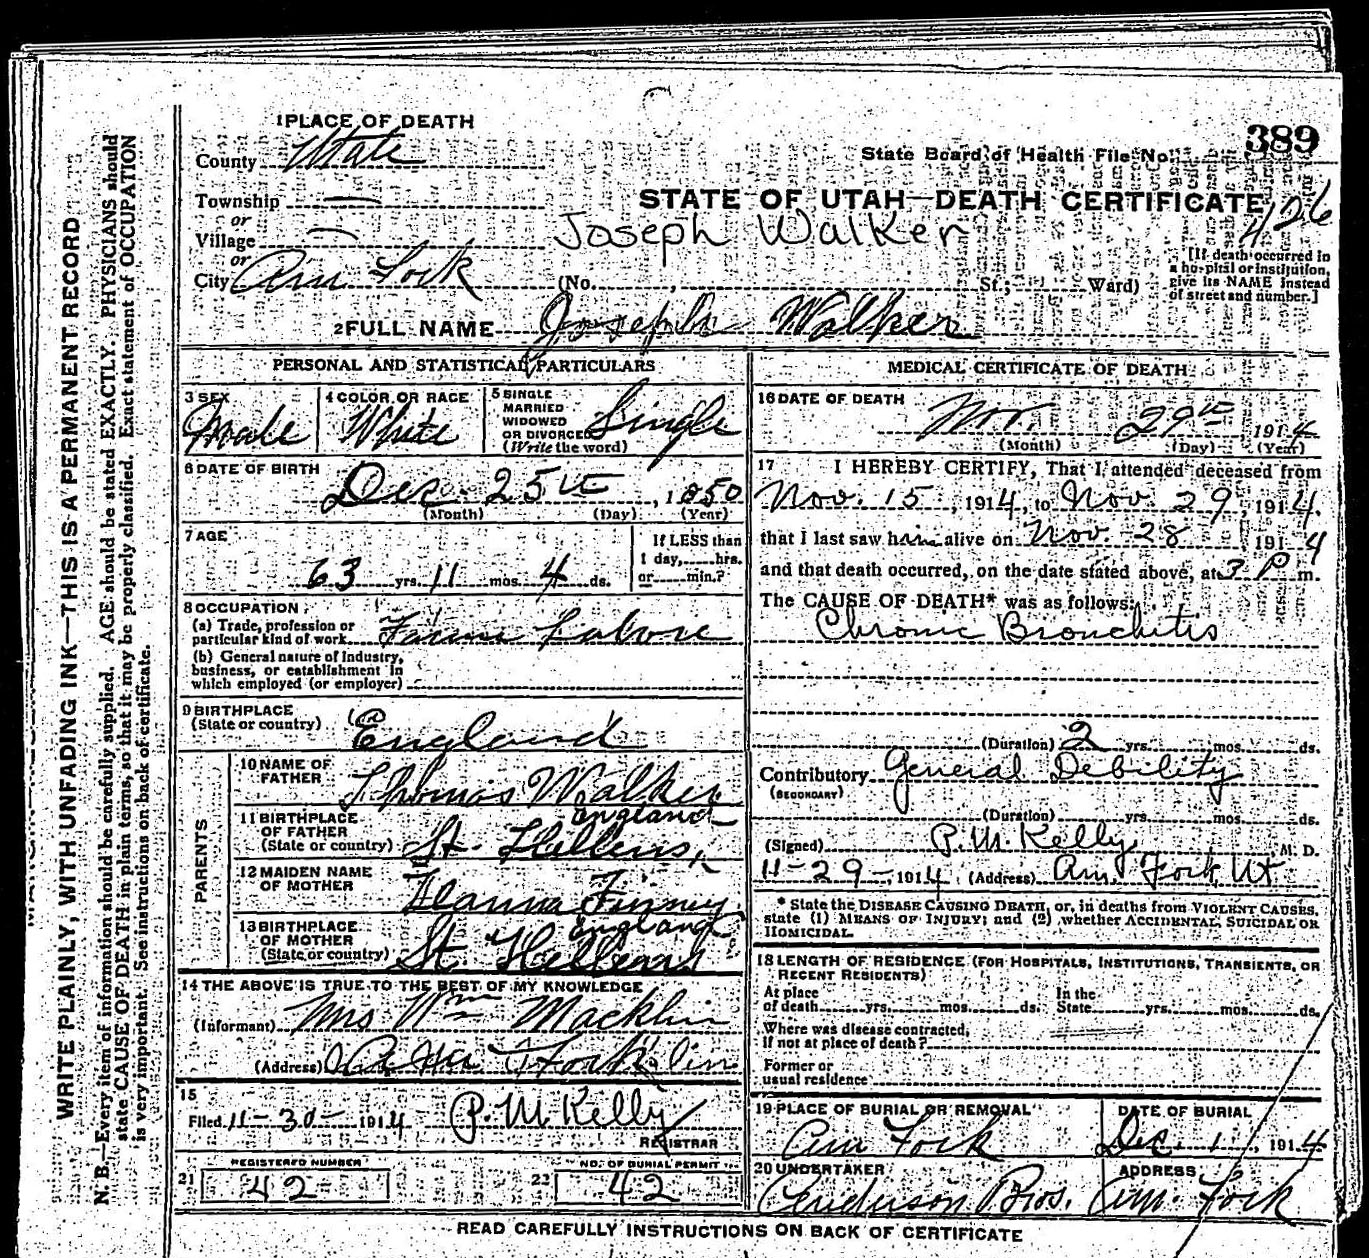 389
1 PLACE OF DEATH
State Board of Health File No.
County Utah
STATE OF UTAH—DEATH CERTIFICATE
426
Township —
Joseph Walker
or
Village —
or
City Am Fork (No. , St.; Ward)
[If death occurred in
a hospital or institution,
give its NAME instead
of street and number.]
2 FULL NAME Joseph Walker
PERSONAL AND STATISTICAL PARTICULARS
3 SEX Male
4 COLOR OR RACE White
5 SINGLE
MARRIED
WIDOWED
OR DIVORCED
(Write the word) Single
6 DATE OF BIRTH
Dec. 25th, 1850
(Month) (Day) (Year)
7 AGE
63 yrs. 11 mos. 4 ds.
If LESS than
1 day, hrs.
or min.?
8 OCCUPATION
(a) Trade, profession or
particular kind of work Farm Labore
(b) General nature of industry,
business, or establishment in
which employed (or employer)
9 BIRTHPLACE
(State or country) England
PARENTS
10 NAME OF
FATHER Thomas Walker
11 BIRTHPLACE
OF FATHER
(State or country) St. Hellens, England
12 MAIDEN NAME
OF MOTHER Finney
13 BIRTHPLACE
OF MOTHER
(State or country) St. Hellens England
14 THE ABOVE IS TRUE TO THE BEST OF MY KNOWLEDGE
(Informant) Mrs Wm Macklin
(Address)
15
Filed 11-30- 1914 P.M Kelly
REGISTRAR
REGISTERED NUMBER
21 42
NO. OF BURIAL PERMIT
22 42
MEDICAL CERTIFICATE OF DEATH
16 DATE OF DEATH
Nov. 29th 1914
(Month) (Day) (Year)
17 I HEREBY CERTIFY, That I attended deceased from
Nov. 15, 1914, to Nov. 29, 1914,
that I last saw him alive on Nov. 28 1914
and that death occurred, on the date stated above, at 3 P m.
The CAUSE OF DEATH* was as follows:
Chronic Bronchitis
(Duration) 2 yrs. mos. ds.
Contributory General Debility
(SECONDARY)
(Duration) yrs. mos. ds.
(Signed) P.M. Kelly M. D.
11-29-, 1914 (Address) Am. Fork, Ut
* State the DISEASE CAUSING DEATH, or, in deaths from VIOLENT CAUSES,
state (1) MEANS OF INJURY; and (2) whether ACCIDENTAL, SUICIDAL OR
HOMICIDAL.
18 LENGTH OF RESIDENCE (FOR HOSPITALS, INSTITUTIONS, TRANSIENTS, OR
RECENT RESIDENTS)
At place
of death yrs. mos. ds.
In the
State yrs. mos. ds.
Where was disease contracted,
if not at place of death?
Former or
usual residence
19 PLACE OF BURIAL OR REMOVAL
Am Fork
DATE OF BURIAL
Dec. 1, 1914
20 UNDERTAKER
Anderson Bros.
ADDRESS
Am. Fork
READ CAREFULLY INSTRUCTIONS ON BACK OF CERTIFICATE
WRITE PLAINLY, WITH UNFADING INK—THIS IS A PERMANENT RECORD
N. B.—Every item of information should be carefully supplied. AGE should be stated EXACTLY. PHYSICIANS should
state CAUSE OF DEATH in plain terms, so that it may be properly classified. Exact statement of OCCUPATION
is very important. See instructions on back of certificate.